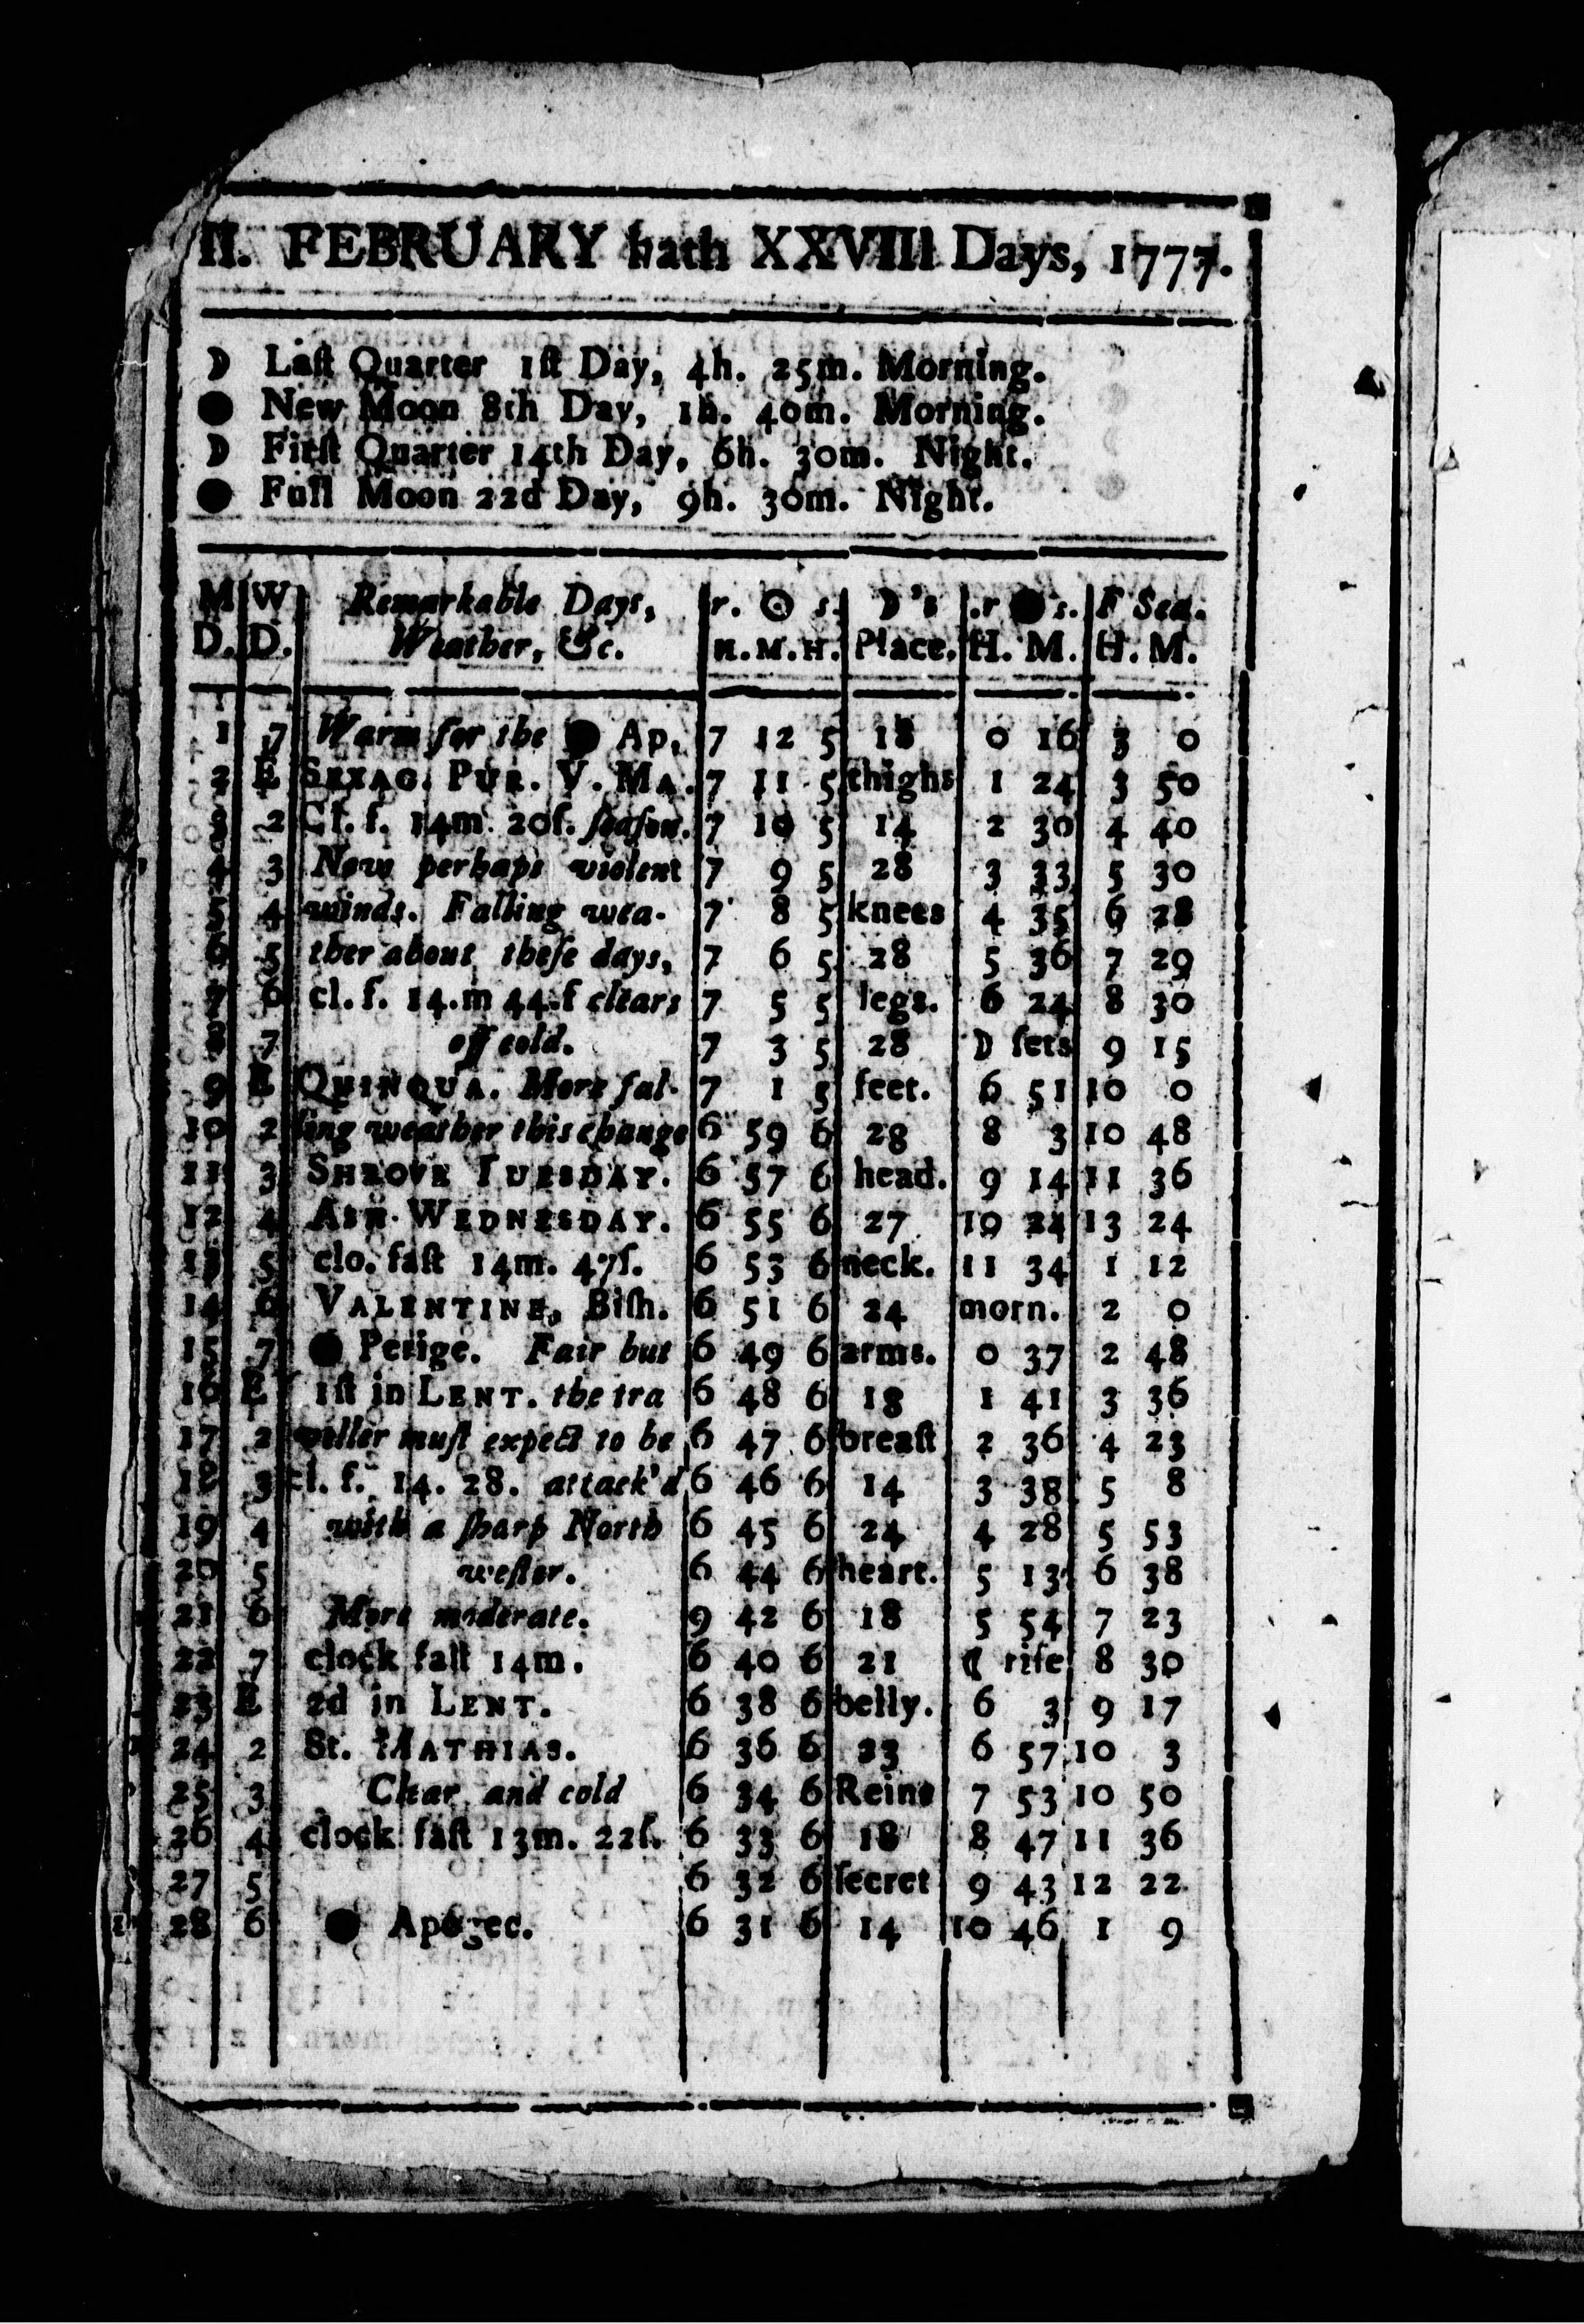 II. FEBRUARY hath XXVIII Days, 1777.
☽ Laſt Quarter 1ſt Day, 4h. 25m. Morning.
● New Moon 8th Day, 1h. 40m. Morning.
☽ Firſt Quarter 14th Day, 6h. 30m. Night.
● Full Moon 22d Day, 9h. 30m. Night.
M W Remarkable Days, r. ☉ s. ☽'s .r ● s. F Sea.
D. D. Weather, &c. H.M.H. Place. H. M. H. M.
1 7 Warm for the ● Ap. 7 12 5 18 0 16 3 0
2 E SEXAG. PUR. V. MA. 7 11 5 thighs 1 24 3 50
3 2 Cl. f. 14m. 20ſ. ſeaſon. 7 10 5 14 2 30 4 40
4 3 Now perhaps violent 7 9 5 28 3 33 5 30
5 4 winds. Falling wea- 7 8 5 knees 4 35 6 28
6 5 ther about theſe days, 7 6 5 28 5 36 7 29
7 6 cl. f. 14.m 44.ſ clears 7 5 5 legs. 6 24 8 30
8 7 off cold. 7 3 5 28 ☽ ſets 9 15
9 E QUINQUA. More fal- 7 1 5 feet. 6 51 10 0
10 2 ling weather this change 6 59 6 28 8 3 10 48
11 3 SHROVE TUESDAY. 6 57 6 head. 9 14 11 36
12 4 ASH-WEDNESDAY. 6 55 6 27 10 24 13 24
13 5 clo. faſt 14m. 47ſ. 6 53 6 neck. 11 34 1 12
14 6 VALENTINE, Biſh. 6 51 6 24 morn. 2 0
15 7 ● Perige. Fair but 6 49 6 arms. 0 37 2 48
16 E 1ſt in LENT. the tra 6 48 6 18 1 41 3 36
17 2 veller muſt expect to be 6 47 6 breaſt 2 36 4 23
18 3 cl. f. 14. 28. attack'd 6 46 6 14 3 38 5 8
19 4 with a ſharp North 6 45 6 24 4 28 5 53
20 5 weſter. 6 44 6 heart. 5 13 6 38
21 6 More moderate. 9 42 6 18 5 54 7 23
22 7 clock faſt 14m. 6 40 6 21 ☾ riſe 8 30
23 E 2d in LENT. 6 38 6 belly. 6 3 9 17
24 2 St. MATHIAS. 6 36 6 23 6 57 10 3
25 3 Clear and cold 6 34 6 Reins 7 53 10 50
26 4 clock faſt 13m. 22ſ. 6 33 6 18 8 47 11 36
27 5 6 32 6 ſecret 9 43 12 22
28 6 ● Apogee. 6 31 6 14 10 46 1 9